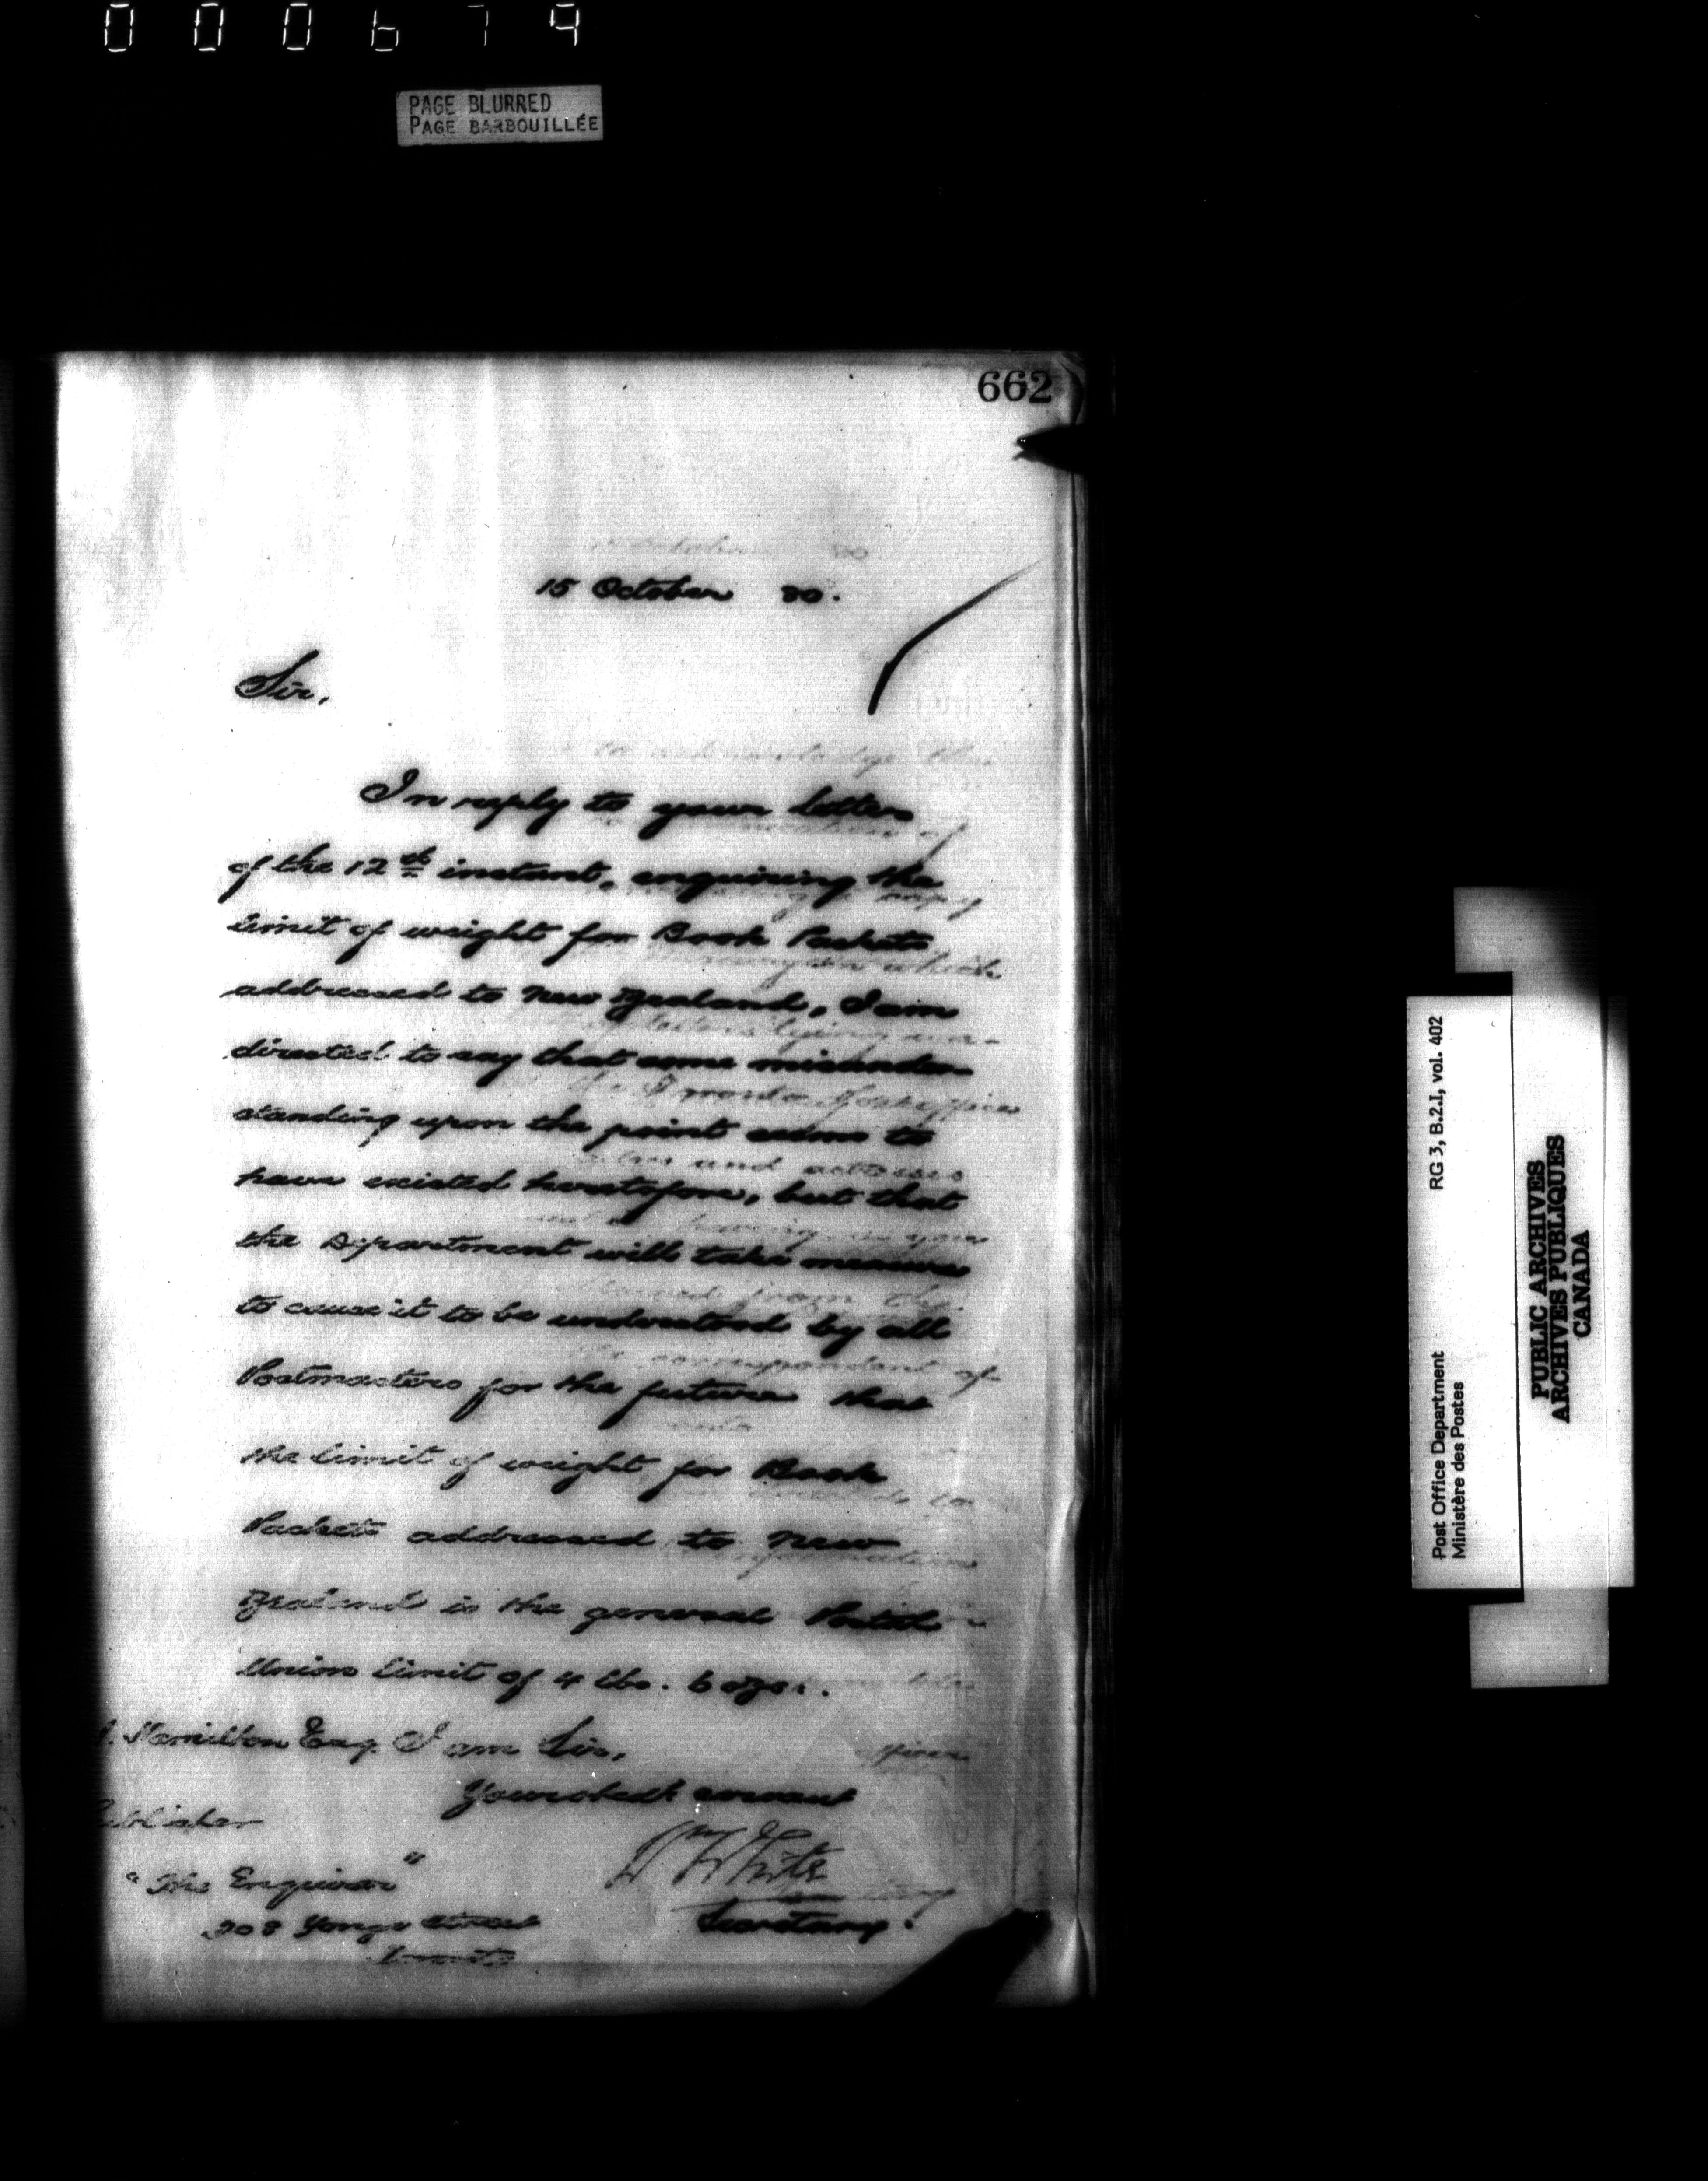 000679
PAGE BLURRED
PAGE BARBOUILLÉE
662
15 October 80.
Sir,
In reply to your letter
of the 12th instant, enquiring the
limit of weight for Book Packets
addressed to New Zealand, I am
directed to say that some misunder-
standing upon the point seems to
have existed heretofore, but that
the Department will take measures
to cause it to be understood by all
Postmasters for the future that
the limit of weight for Book
Packets addressed to New
Zealand is the general Postal
Union limit of 4 lbs. 6 ozs.
Hamilton Esq. I am Sir,
Your obedt servant
Publisher
Wm White
"The Enquirer"
Secretary.
208 Yonge Street
Toronto
Post Office Department RG 3, B.2.I, vol. 402
Ministère des Postes
PUBLIC ARCHIVES
ARCHIVES PUBLIQUES
CANADA